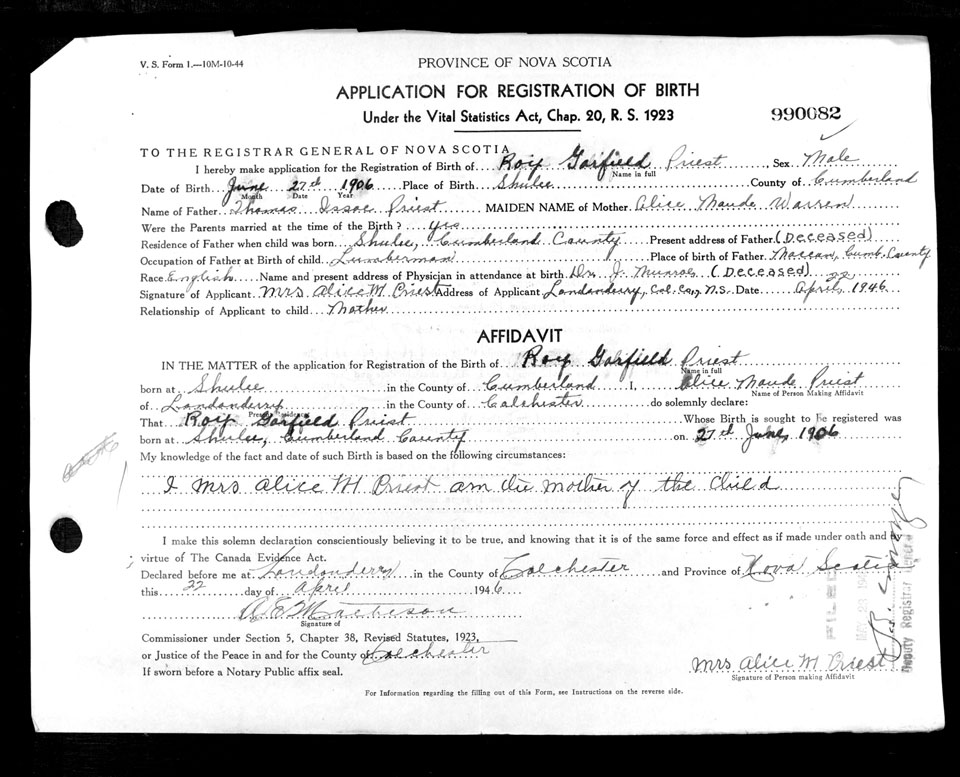 V. S. Form 1.—10M-10-44
PROVINCE OF NOVA SCOTIA
APPLICATION FOR REGISTRATION OF BIRTH
Under the Vital Statistics Act, Chap. 20, R. S. 1923
990082
TO THE REGISTRAR GENERAL OF NOVA SCOTIA
I hereby make application for the Registration of Birth of Roy Garfield Priest, Sex Male
Name in full
Date of Birth June 27th 1906 Place of Birth Shulee County of Cumberland
Month Date Year
Name of Father Thomas Issac Priest MAIDEN NAME of Mother Alice Maude Warren
Were the Parents married at the time of the Birth? yes
Residence of Father when child was born Shulee, Cumberland County Present address of Father (Deceased)
Occupation of Father at Birth of child Lumberman Place of birth of Father Maccan, Cumb. County
Race English Name and present address of Physician in attendance at birth Dr. J. Munroe (Deceased)
Signature of Applicant Mrs Alice M Priest Address of Applicant Londonderry, Col. Co., N.S. Date April 22 1946
Relationship of Applicant to child Mother
AFFIDAVIT
IN THE MATTER of the application for Registration of the Birth of Roy Garfield Priest
Name in full
born at Shulee in the County of Cumberland I, Alice Maude Priest
Name of Person Making Affidavit
of Londonderry in the County of Colchester do solemnly declare:
Present Residence
That Roy Garfield Priest Whose Birth is sought to be registered was
born at Shulee, Cumberland County on 27th June, 1906
My knowledge of the fact and date of such Birth is based on the following circumstances:
I Mrs Alice M Priest am the mother of the Child
I make this solemn declaration conscientiously believing it to be true, and knowing that it is of the same force and effect as if made under oath and by
virtue of The Canada Evidence Act.
Declared before me at Londonderry in the County of Colchester and Province of Nova Scotia
this 22 day of April 1946
Signature of
Commissioner under Section 5, Chapter 38, Revised Statutes, 1923,
or Justice of the Peace in and for the County of Colchester
If sworn before a Notary Public affix seal.
Mrs Alice M Priest
Signature of Person making Affidavit
For Information regarding the filling out of this Form, see Instructions on the reverse side.
FILED
Deputy Registrar General